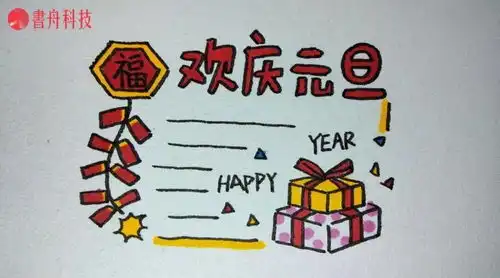 書舟科技
福
欢庆元旦
YEAR
HAPPY